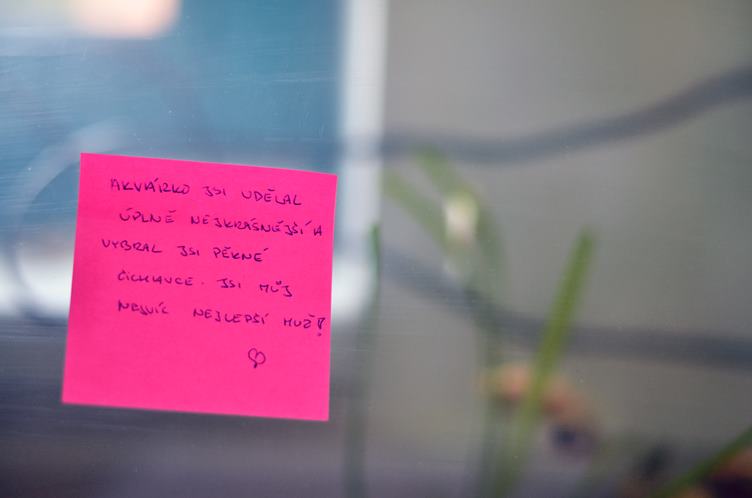 AKVÁRKO JSI UDĚLAL
ÚPLNĚ NEJKRÁSNĚJŠÍ A
VYBRAL JSI PĚKNÉ
ČICHAVCE. JSI MŮJ
NEJVÍC NEJLEPŠÍ MUŽ!